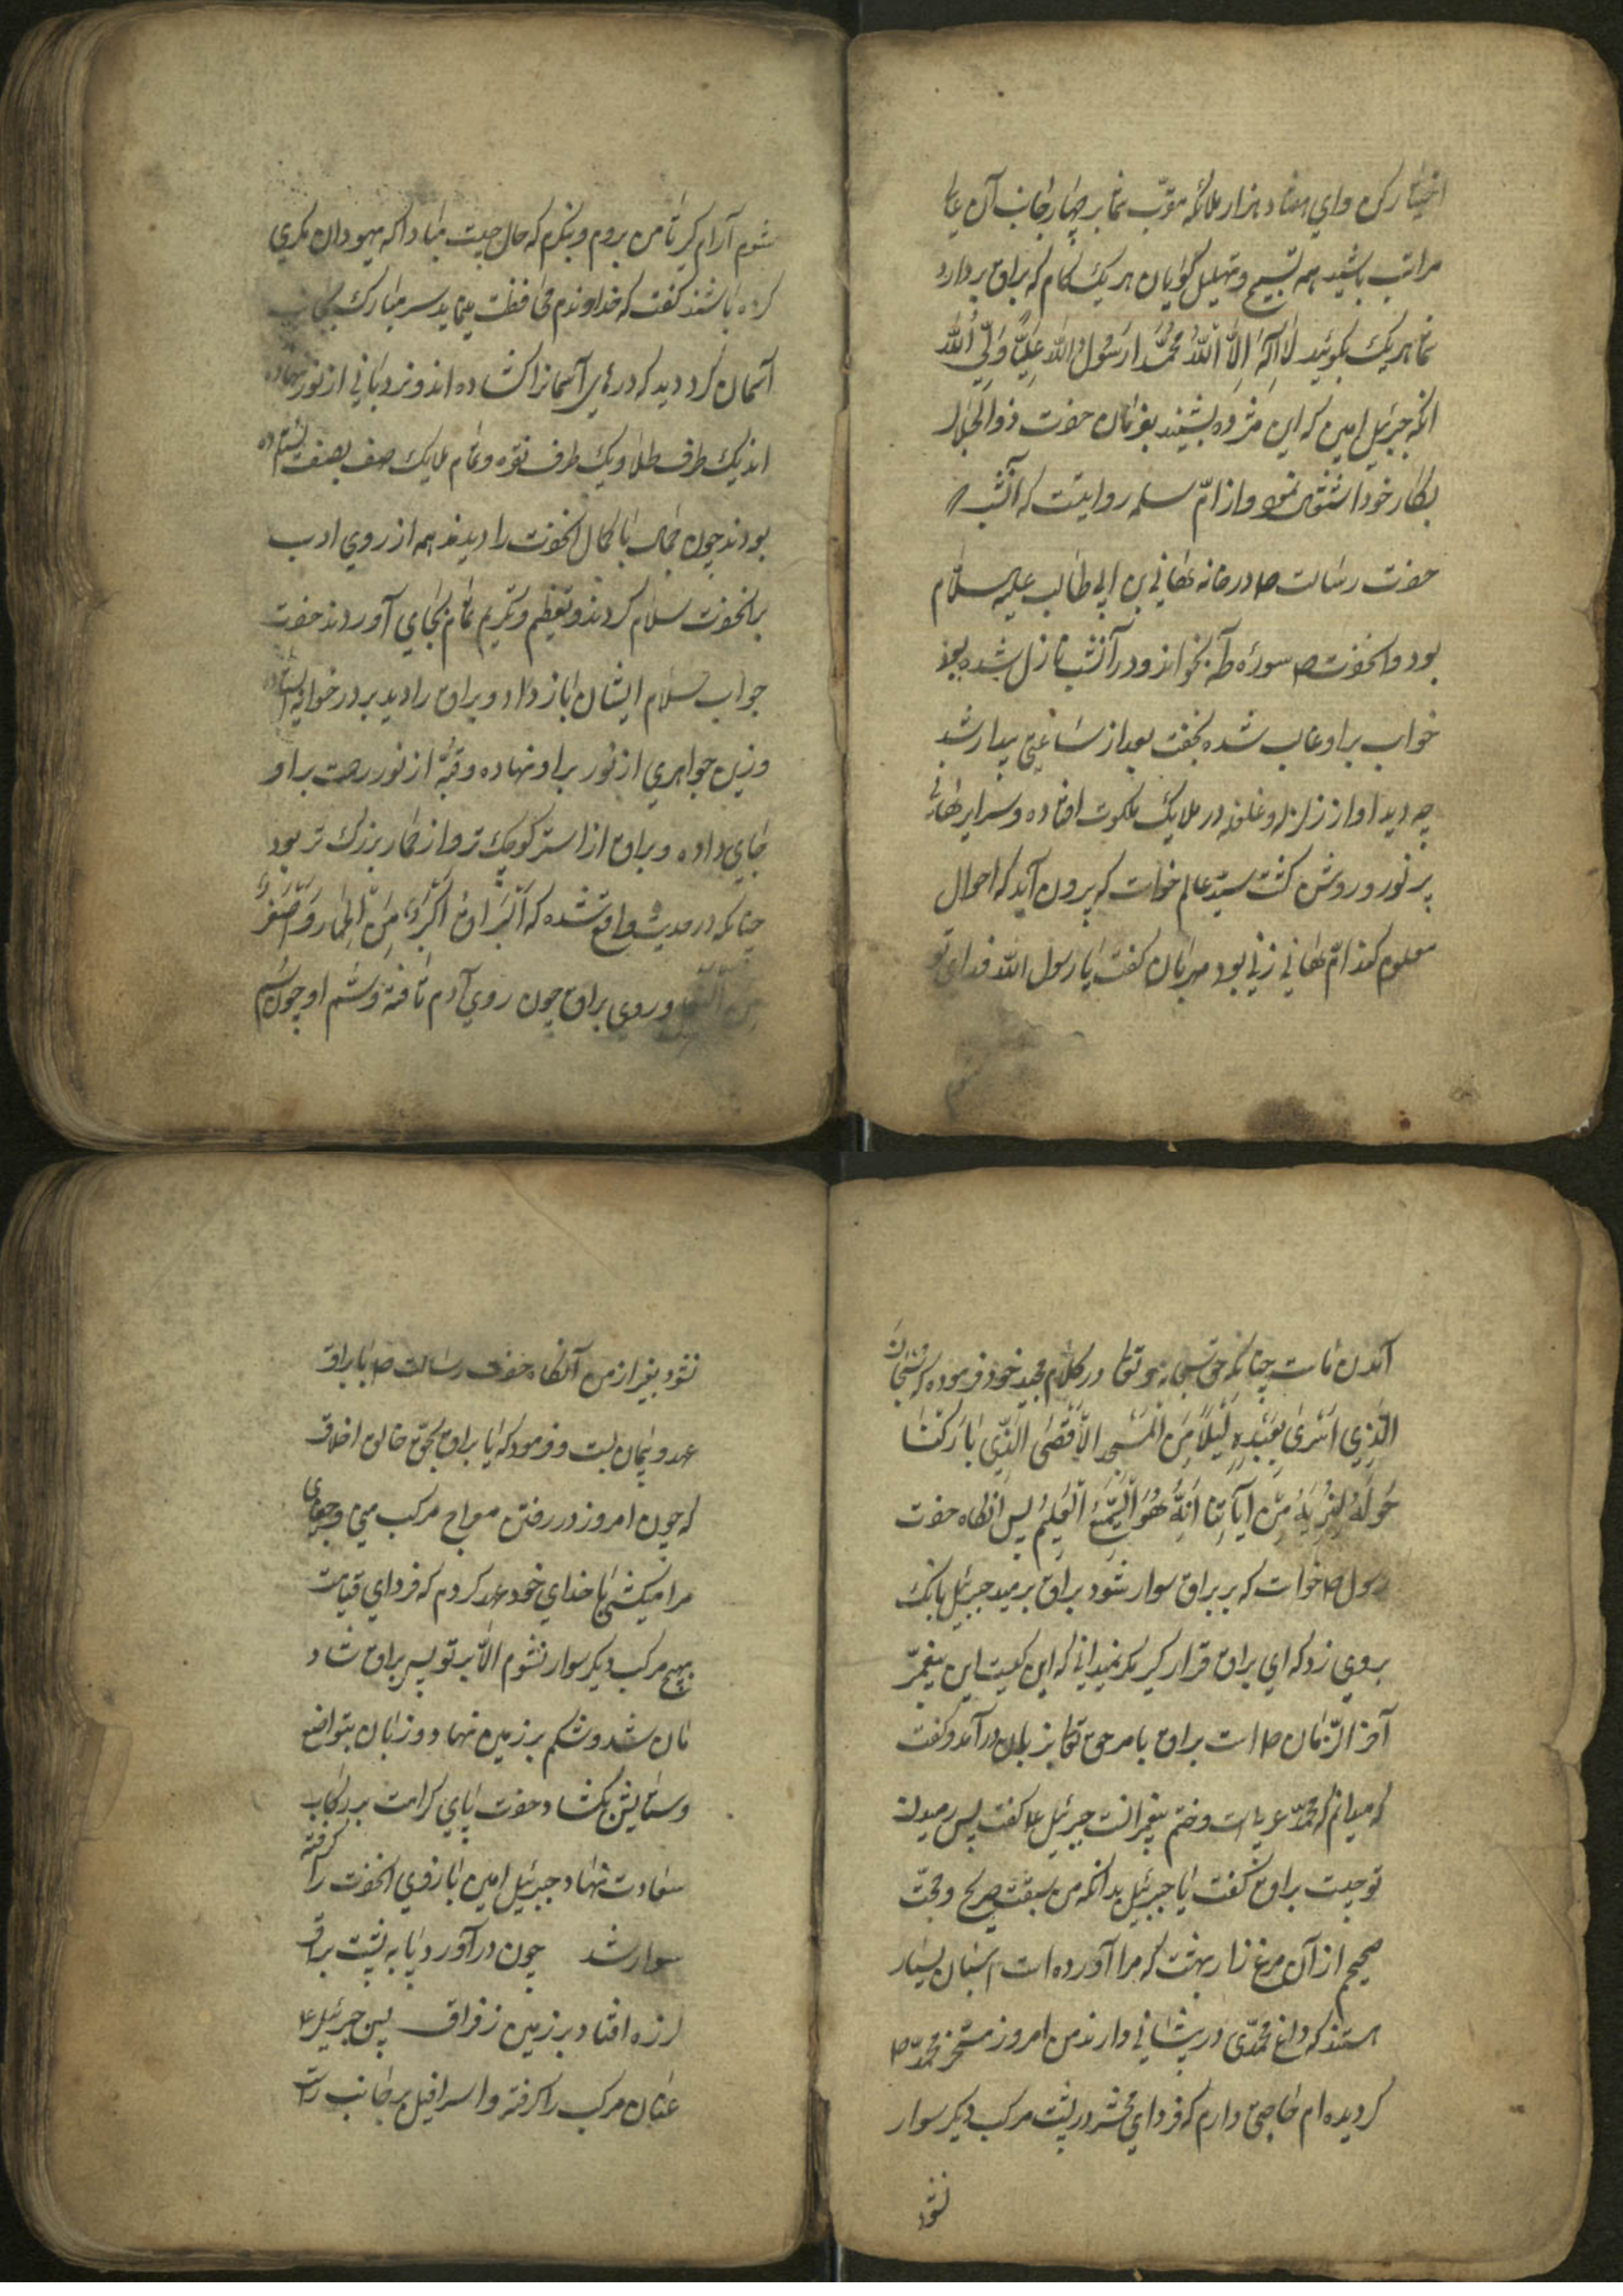 اختیار کن وای هفتاد هزار ملائکه مقرّب شما بر چهار جانب آن
مراتب باشید همه تسبیح و تهلیل کویان هر یک کام که براق بردارد
شما هریک بکوئید لا اله الا الله محمدا رسول الله علیا ولی الله
انکه جبرئیل امین که این مژده بشنید بفرمان حضرت ذوالجلال
بکار خود مشغول و از امّ سلمه روایتست که آنشب
حضرت رسالت ص در خانه هانی بن ابی طالب علیه السلام
بود وانحضرت ص سورهٔ طه بخواند و در آنشب نازل شده بود
خواب بر او غالب شده بخفت بعد از ساعتی بیدار شد
چه دید اواز زلزله و غلغله در ملایک ملکوت افتاده و سرای
پر نور و روشن کشت سید عالم خواست که برون آید که احوال
معلوم کند امّ هانی زنی بود مهربان کفت یا رسول الله فدای تو
شوم آرام کیر تا من بروم و بنکرم که حال چیست مبادا که یهودان مکری
کرده باشند کفت که خداوندم محافظت مینماید سر مبارک بجانب
آسمان کرد دید که درهای آسمانرا کشاده اند و نردبانی از نور نهاده
اند یک طرف طلا و یک طرف نقره و تمام ملایک صف بصف
بودند چون جمال با کمال انحضرت را دیدند همه از روی ادب
بر انحضرت سلام کردند و تعظیم و تکریم تمام بجای آوردند حضرت
جواب سلام ایشان باز داد و براق را دید بر در
وزین جواهری از نور بر او نهاده و قبّه از نور رحمت بر او
جای داده و براق از استر کوچک تر و از حمار بزرک تر بود
چنانکه در حدیث واقع شده که البراق اکبر من الحمار و اصغر
من البغل و روی براق چون روی آدم تافته و شم او چون سم
آمدن ماست چنانکه حق سبحانه و تعالی در کلام مجید خود فرموده که سبحان
الذی اسری بعبده لیلا من المسجد الاقصی الذی بارکنا
حوله لنریه من ایاتنا انه هو السمیع العلیم پس انکاه حضرت
رسول ص خواست که بر براق سوار شود براق برمید جبرئیل بانک
بروی زد که ای براق قرار کیر مکر نمیدانی که این کیست این پیغمبر
آخر الزمان ص است براق بامر حق تعالی بزبان در آمد و کفت
که میدانم که محمد عربی است و ختم پیغمبرانست جبرئیل ع کفت پس رمیدن
تو چیست براق کفت یا جبرئیل بدانکه من صریح و حجت
صحیح از آن مرغ زار بهشت که مرا آورده است اسبان بسیار
هستند که داغ محمدی در پیشانی دارند من امروز مسخر محمد ص
کردیده ام حاجتی دارم که فردای محشر در پشت مرکب دیکر سوار
نشود
نشود بغیر از من آنکاه حضرت رسالت ص با براق
عهد و پیمان بست و فرمود که یا براق بحق خالق اخلاق
که چون امروز در رفتن معراج مرکب منی و
مرا میکشی با خدای خود عهد کردم که فردای قیامت
بهیچ مرکب دیکر سوار نشوم الا بر تو پس براق شاد
مان شد و شکم بر زمین نهاد و زبان بتواضع
و ستایش بکشاد حضرت پای کرامت بر رکاب
سعادت نهاد جبرئیل امین بازوی انحضرت را کرفته
سوار شد چون در آورد پا به پشت براق
لرزه افتاد بر زمین ز فراق پس جبرئیل ع
عنان مرکب را کرفته و اسرافیل بر جانب راست